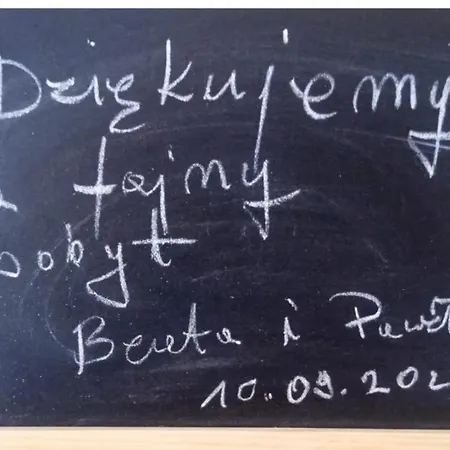 Dziękujemy
fajny
pobyt
Beata i Paweł
10.09.202